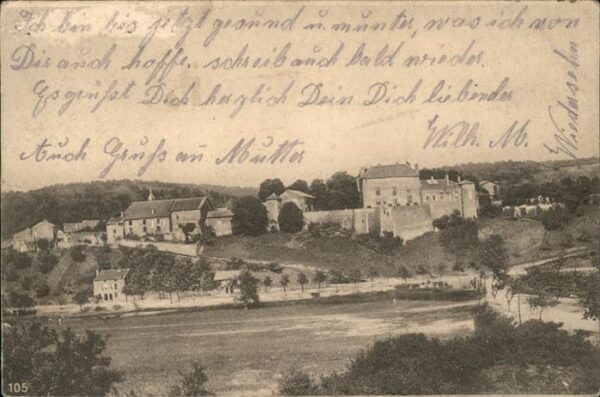 Ich bin bis jetzt gesund u. munter, was ich von
Dir auch hoffe. schreib auch bald wieder.
Es grüßt Dich herzlich Dein Dich liebender
Wilh. M.
Auch Gruß an Mutter
Wiedersehn
105